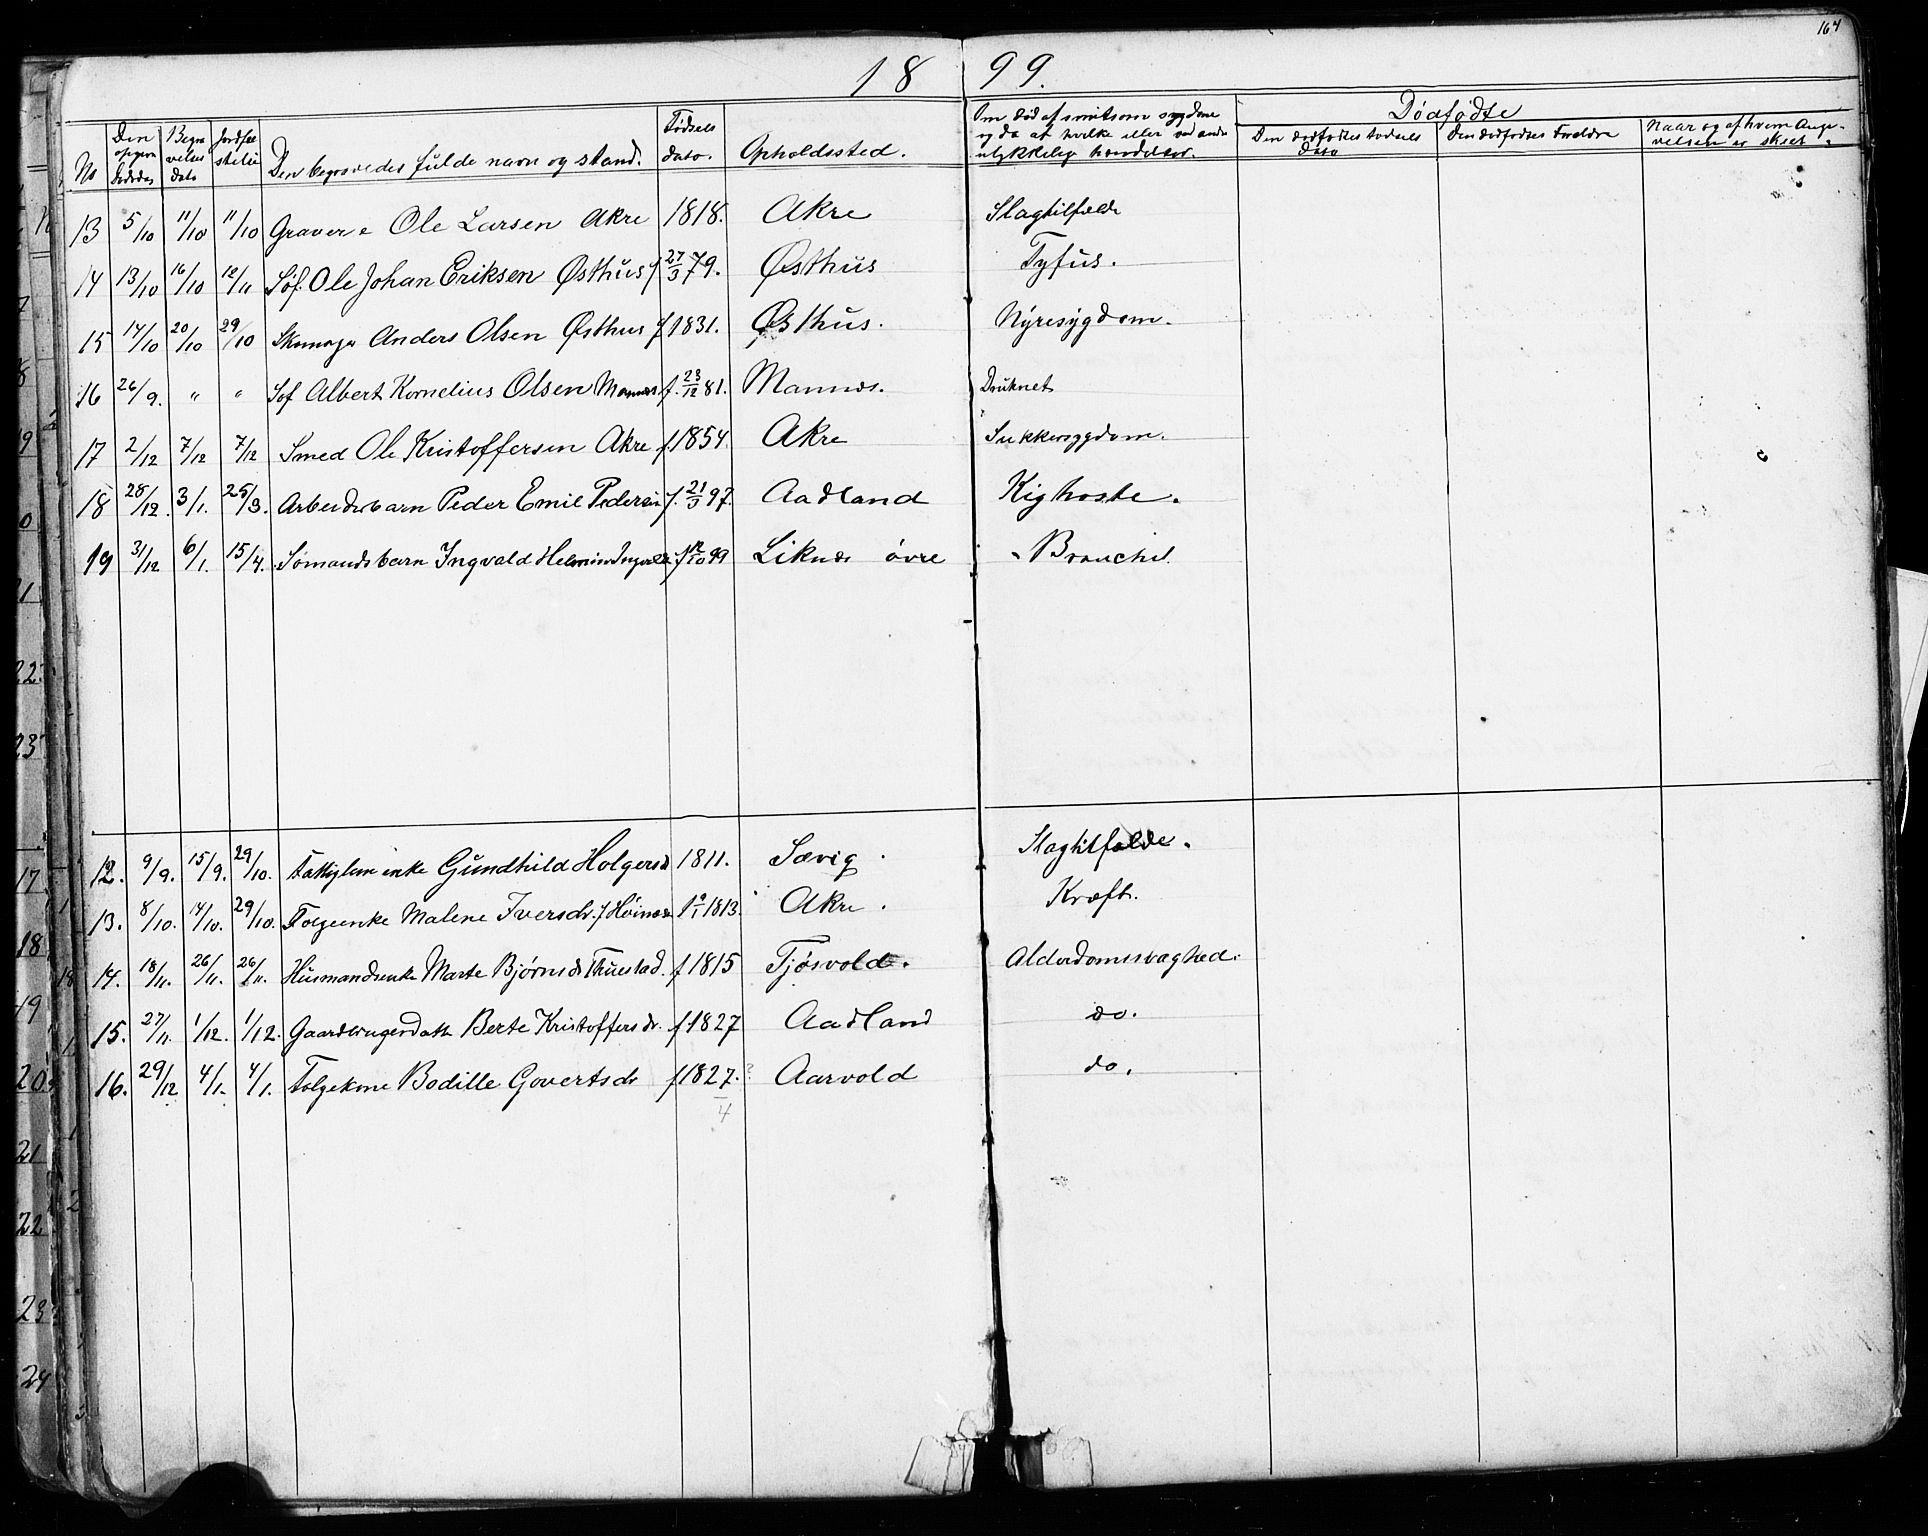 164
18 99.
No
Den opgivne Dødsdag
Begravelses dato
Jordfæstelse
Den begravedes fulde navn og stand.
Fødsels dato.
Opholdssted.
Om død af smitsom sygdom
og da af hvilke eller ved andre
ulykkelige hændelser.
Dødfødte
Den dødfødtes Fødsels Dato
Den dødfødtes Forældre
Naar og af hvem Angivelsen er skeet.
13 5/10 11/10 11/10 Graver Ole Larsen Akre 1818. Akre Slagtilfælde
14 13/10 16/10 12/11 Søf. Ole Johan Eriksen Østhus f 27/3 79. Østhus Tyfus.
15 14/10 20/10 29/10 Skomager Anders Olsen Østhus f 1831. Østhus. Nyresygdom.
16 26/9. " " Søf Albert Kornelius Olsen Mannes f. 23/12 81. Mannes. Druknet
17 2/12 7/12 7/12 Smed Ole Kristoffersen Akre f. 1854. Akre Sukkersygdom.
18 28/12. 3/1. 25/3. Arbeiderbarn Peder Emil Pedersen f. 21/3 97. Aadland Kighoste.
19 31/12 6/1. 15/4. Sømandsbarn Ingvald Helmin f 12/10 99 Liknes øvre Bronchit.
12. 9/9. 15/9. 29/10. Fattiglem enke Gundhild Holgersd 1811. Sævig Slagtilfælde.
13. 8/10. 14/10. 29/10. Folgeenke Malene Iversdr. f Høines 1813. Akre. Kræft.
14. 18/11. 26/11. 26/11. Husmandsenke Marte Bjørnsd Thuestad. f 1815 Tjøsvold. Alderdomssvaghed.
15. 27/11. 1/12. 1/12. Gaardbrugerdatt Berte Kristoffersdr. f 1827 Aadland do.
16. 29/12 4/1. 4/1. Folgekone Bodille Govertsdr f 1827. ? Aarvold do.
4